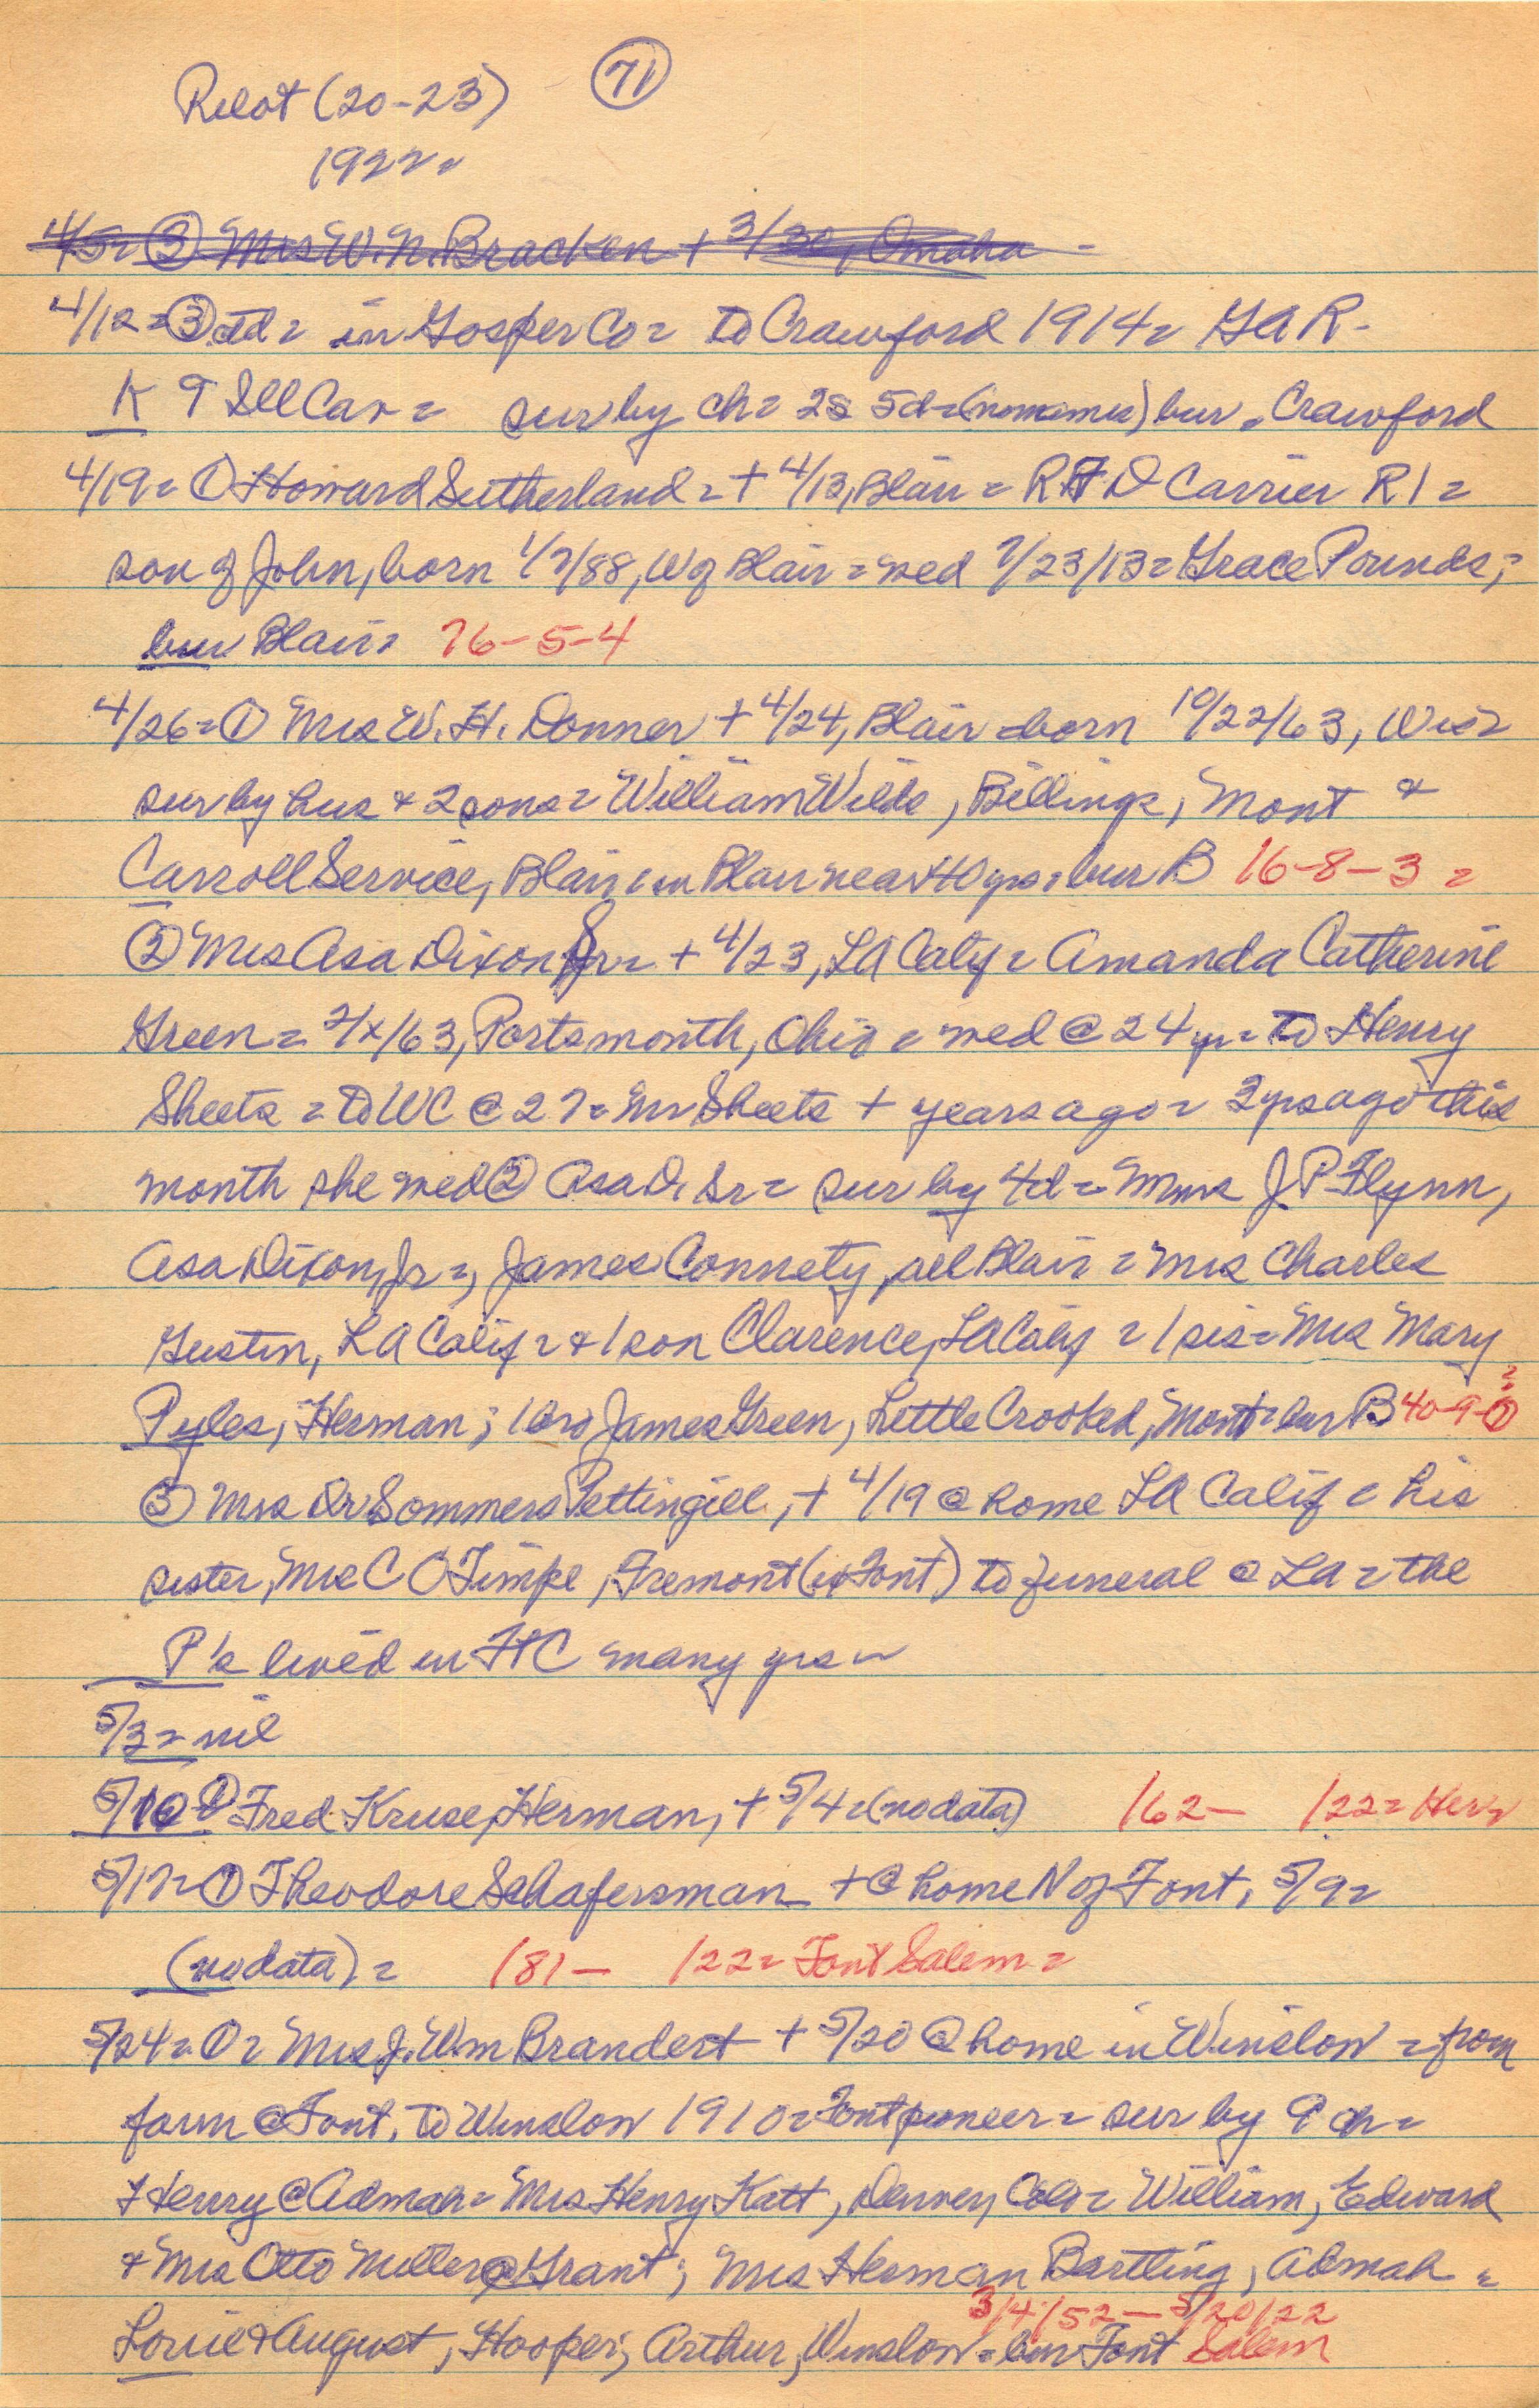 Pilot (20-23) 71
1922=
4/5= ③ Mrs W. N. Bracken + 3/30, Omaha -
4/12= ③ ctd= in Gosper Co= to Crawford 1914= GAR-
K T Ill Cav= sur by ch= 2s 5d= (no names) bur. Crawford
4/19= ① Howard Sutherland= + 4/13, Blair= RFD Carrier R1=
son of John, born 1/7/88, W of Blair= wed 7/23/13= Grace Pounds;=
bur Blair= 76-5-4
4/26= ① Mrs W. H. Donner + 4/24, Blair= born 10/22/63, Wis=
sur by hus & 2 sons= William Wilds, Billings, Mont &
Carroll Service, Blair= in Blair near 40 yrs= bur B 16-8-3=
② Mrs Asa Dixon Sr= + 4/23, LA Calif= Amanda Catherine
Green= 2/x/63, Portsmouth, Ohio= wed @ 24 yr= to Henry
Sheets= to WC @ 27= Mr Sheets + years ago= 2 yrs ago this
month she wed ② Asa D. Sr= sur by 4d= Mmes J P Flynn,
Asa Dixon, Jr=, James Connety, all Blair= Mrs Charles
Gustin, LA Calif= & 1 son Clarence, LA Calif= 1 sis= Mrs Mary
Pyles, Herman; 1 bro James Green, Little Crooked, Mont= bur B 40-9-① ?
③ Mrs Dr Sommers Pettingill, + 4/19 @ home LA Calif= his
sister, Mrs C C Timpe, Fremont (ex Font) to funeral @ LA= the
P's lived in FtC many yrs=
5/3= nil
5/10 ①= Fred Kruse, Herman, + 5/4= (no data) 162- 122= Her=
5/17= ① Theodore Schafersman + @ home N of Font, 5/9=
(no data)= 181- 122= Font Salem=
5/24= ①= Mrs J. Wm Brandert + 5/20 @ home in Winslow= from
farm @ Font. to Winslow 1910= Font pioneer= sur by 9 ch=
Henry @ Admah= Mrs Henry Katt, Denver, Colo= William, Edward
& Mrs Otto Miller @ Grant; Mrs Herman Bartling, Admah=
3/4/52- 5/20/22
Louie & August, Hooper; Arthur, Winslow= bur Font Salem